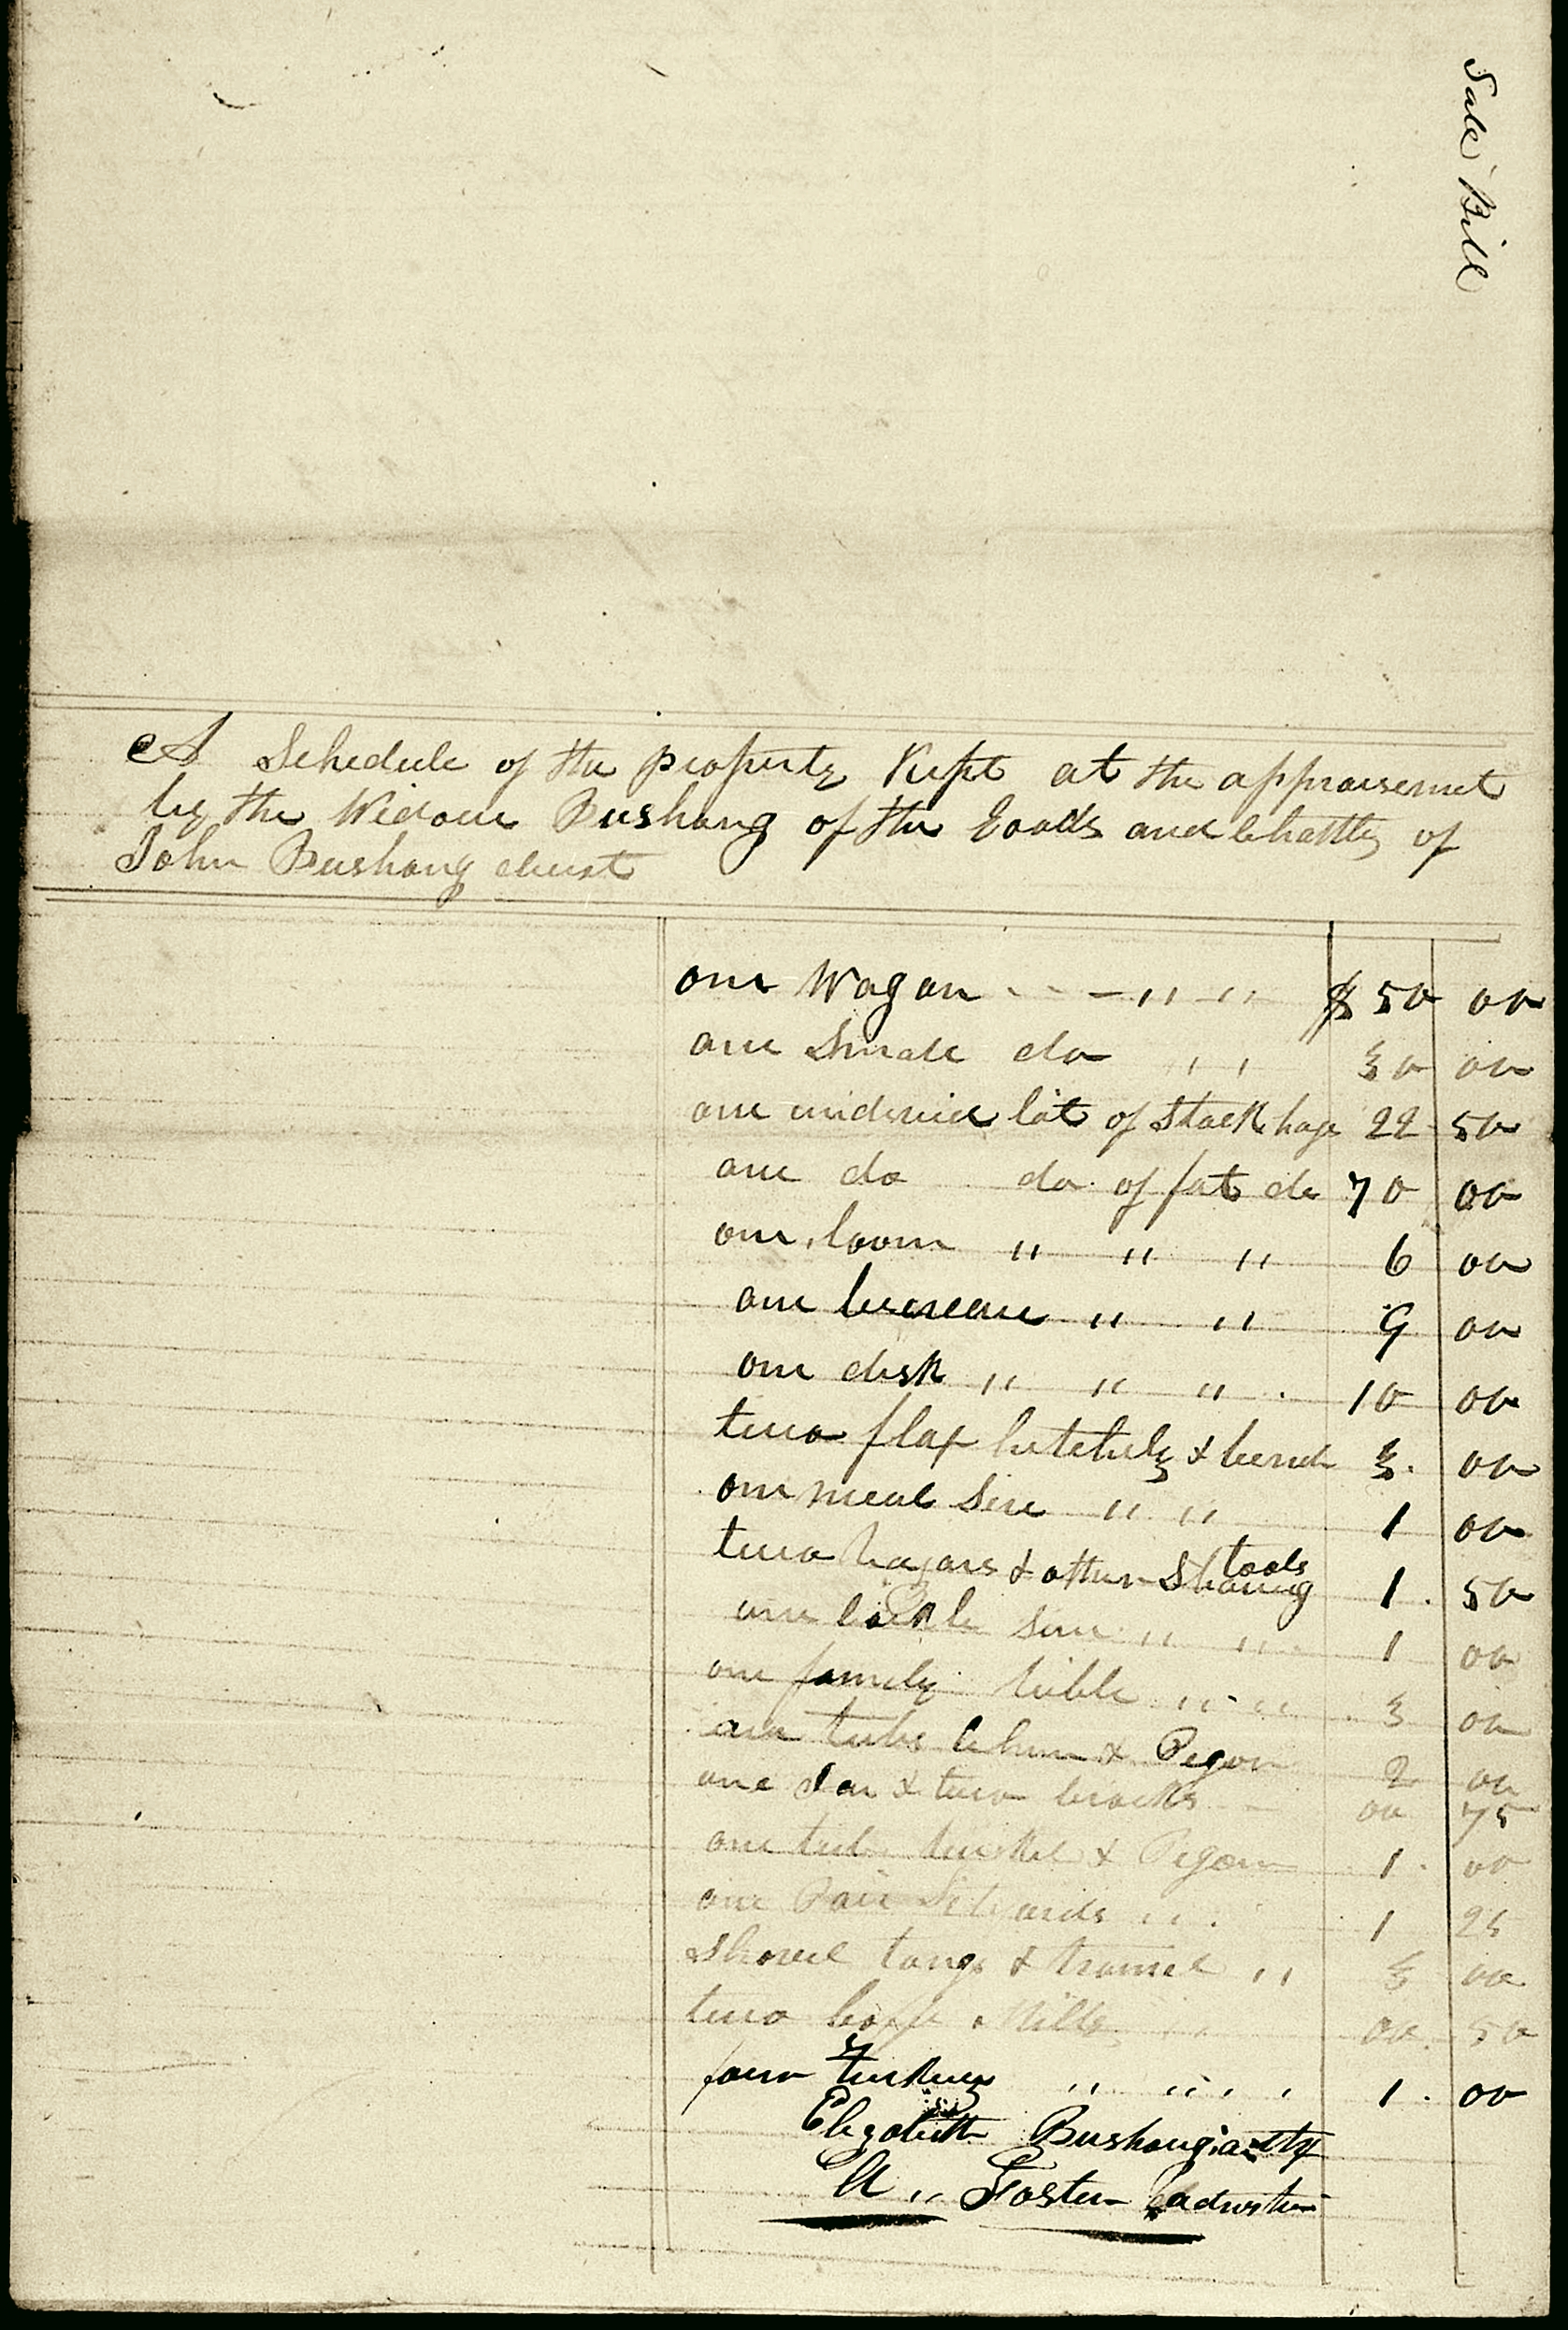 Sale Bill
A Schedule of the property Kept at the appraisemet
by the Widow Bushong of the Goods and Chattles of
John Bushong decest
one Wagon - - - " " $ 50 00
one Small do " " 30 00
one undivided lot of Stock hogs 22 50
one do do of fat do 70 00
one loom " " " 6 00
one bureau " " 9 00
one desk " " " 10 00
two flax hetchels & bench 3. 00
one meal Sive " " 1 00
two Razors & other Shaving tools 1. 50
one Sive " " 1 00
one family bible " " 3 00
one tub Churn & Pigon 2 00
one Jar & two crocks 00 75
one tub bucket & Pigon 1. 00
one Pair " " 1 25
Shovel tongs & tramel " " 3 00
two Coffe Mills 00 50
four turkeys " " " 1. 00
Elizabeth Bushong
A " Foster